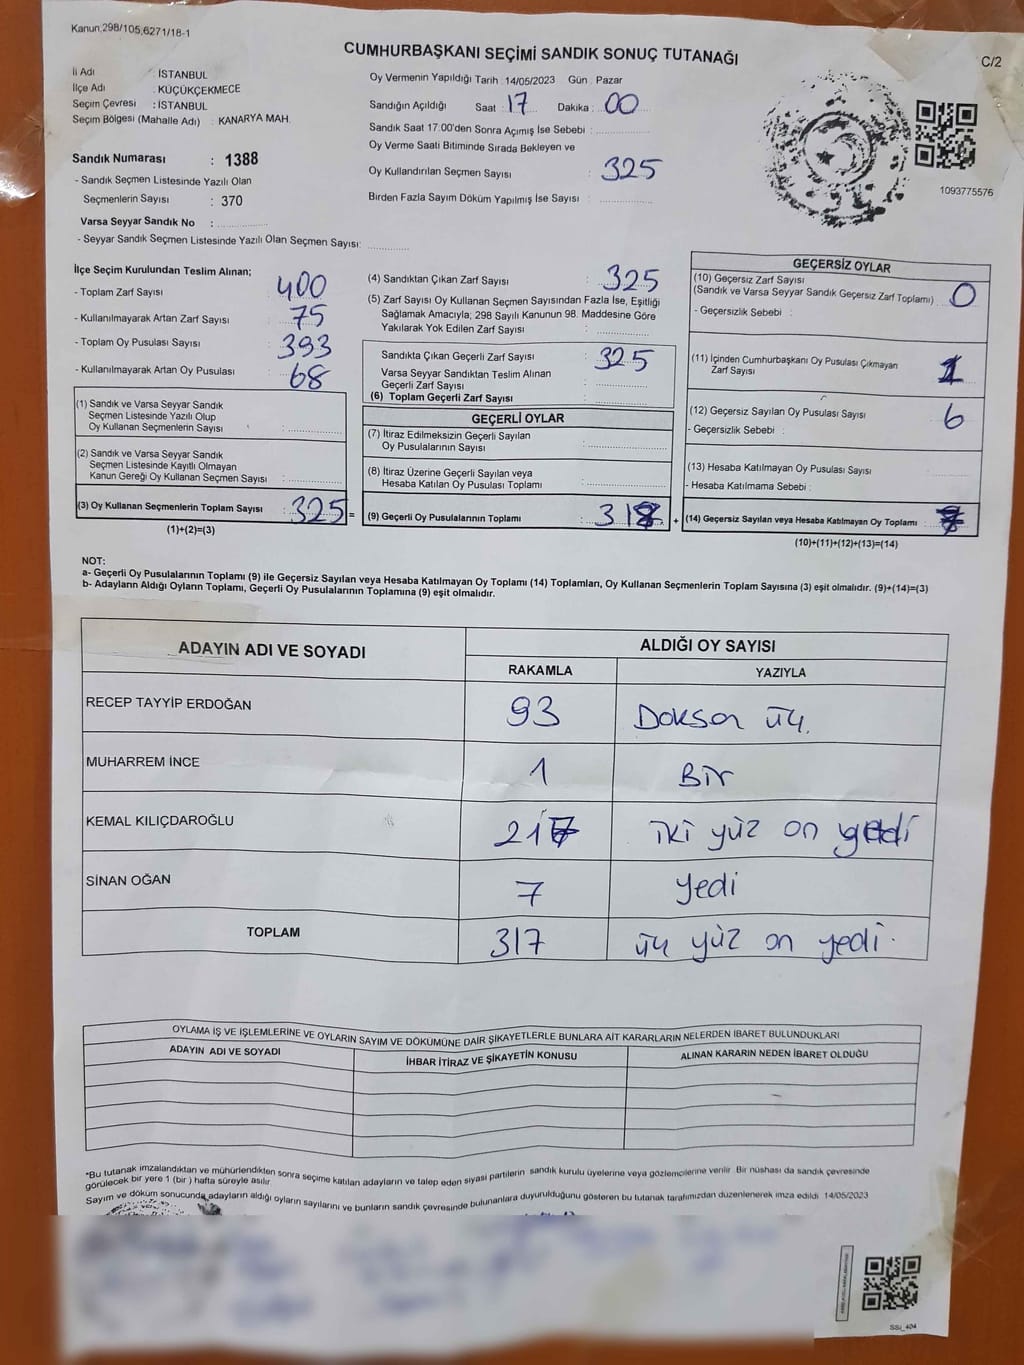 Kanun,298/105,6271/18-1
CUMHURBAŞKANI SEÇİMİ SANDIK SONUÇ TUTANAĞI
C/2
İl Adı : İSTANBUL
İlçe Adı : KÜÇÜKÇEKMECE
Seçim Çevresi : İSTANBUL
Seçim Bölgesi (Mahalle Adı) : KANARYA MAH.
Sandık Numarası : 1388
- Sandık Seçmen Listesinde Yazılı Olan
Seçmenlerin Sayısı : 370
Varsa Seyyar Sandık No :
- Seyyar Sandık Seçmen Listesinde Yazılı Olan Seçmen Sayısı:
Oy Vermenin Yapıldığı Tarih : 14/05/2023 Gün : Pazar
Sandığın Açıldığı Saat : 17 Dakika : 00
Sandık Saat 17:00'den Sonra Açımış İse Sebebi :
Oy Verme Saati Bitiminde Sırada Bekleyen ve
Oy Kullandırılan Seçmen Sayısı : 325
Birden Fazla Sayım Döküm Yapılmış İse Sayısı :
1093775576
İlçe Seçim Kurulundan Teslim Alınan;
- Toplam Zarf Sayısı : 400
- Kullanılmayarak Artan Zarf Sayısı : 75
- Toplam Oy Pusulası Sayısı : 393
- Kullanılmayarak Artan Oy Pusulası : 68
(1) Sandık ve Varsa Seyyar Sandık
Seçmen Listesinde Yazılı Olup
Oy Kullanan Seçmenlerin Sayısı :
(2) Sandık ve Varsa Seyyar Sandık
Seçmen Listesinde Kayıtlı Olmayan
Kanun Gereği Oy Kullanan Seçmen Sayısı :
(3) Oy Kullanan Seçmenlerin Toplam Sayısı : 325 =
(1)+(2)=(3)
(4) Sandıktan Çıkan Zarf Sayısı : 325
(5) Zarf Sayısı Oy Kullanan Seçmen Sayısından Fazla İse, Eşitliği
Sağlamak Amacıyla; 298 Sayılı Kanunun 98. Maddesine Göre
Yakılarak Yok Edilen Zarf Sayısı :
Sandıkta Çıkan Geçerli Zarf Sayısı : 325
Varsa Seyyar Sandıktan Teslim Alınan
Geçerli Zarf Sayısı :
(6) Toplam Geçerli Zarf Sayısı :
GEÇERLİ OYLAR
(7) İtiraz Edilmeksizin Geçerli Sayılan
Oy Pusulalarının Sayısı :
(8) İtiraz Üzerine Geçerli Sayılan veya
Hesaba Katılan Oy Pusulası Toplamı :
(9) Geçerli Oy Pusulalarının Toplamı : 318 +
GEÇERSİZ OYLAR
(10) Geçersiz Zarf Sayısı
(Sandık ve Varsa Seyyar Sandık Geçersiz Zarf Toplamı) : 0
- Geçersizlik Sebebi :
(11) İçinden Cumhurbaşkanı Oy Pusulası Çıkmayan
Zarf Sayısı : 1
(12) Geçersiz Sayılan Oy Pusulası Sayısı : 6
- Geçersizlik Sebebi :
(13) Hesaba Katılmayan Oy Pusulası Sayısı
- Hesaba Katılmama Sebebi :
(14) Geçersiz Sayılan veya Hesaba Katılmayan Oy Toplamı : 7
(10)+(11)+(12)+(13)=(14)
NOT:
a- Geçerli Oy Pusulalarının Toplamı (9) ile Geçersiz Sayılan veya Hesaba Katılmayan Oy Toplamı (14) Toplamları, Oy Kullanan Seçmenlerin Toplam Sayısına (3) eşit olmalıdır. (9)+(14)=(3)
b- Adayların Aldığı Oyların Toplamı, Geçerli Oy Pusulalarının Toplamına (9) eşit olmalıdır.
ADAYIN ADI VE SOYADI ALDIĞI OY SAYISI
RAKAMLA YAZIYLA
RECEP TAYYİP ERDOĞAN 93 Doksan üç.
MUHARREM İNCE 1 Bir
KEMAL KILIÇDAROĞLU 217 iki yüz on yedi
SİNAN OĞAN 7 yedi
TOPLAM 317 üç yüz on yedi.
OYLAMA İŞ VE İŞLEMLERİNE VE OYLARIN SAYIM VE DÖKÜMÜNE DAİR ŞİKAYETLERLE BUNLARA AİT KARARLARIN NELERDEN İBARET BULUNDUKLARI
ADAYIN ADI VE SOYADI İHBAR İTİRAZ VE ŞİKAYETİN KONUSU ALINAN KARARIN NEDEN İBARET OLDUĞU
*Bu tutanak imzalandıktan ve mühürlendikten sonra seçime katılan adayların ve talep eden siyasi partilerin sandık kurulu üyelerine veya gözlemcilerine verilir. Bir nüshası da sandık çevresinde
görülecek bir yere 1 (bir) hafta süreyle asılır.
Sayım ve döküm sonucunda adayların aldığı oyların sayılarını ve bunların sandık çevresinde bulunanlara duyurulduğunu gösteren bu tutanak tarafımızdan düzenlenerek imza edildi. 14/05/2023
SSt_404